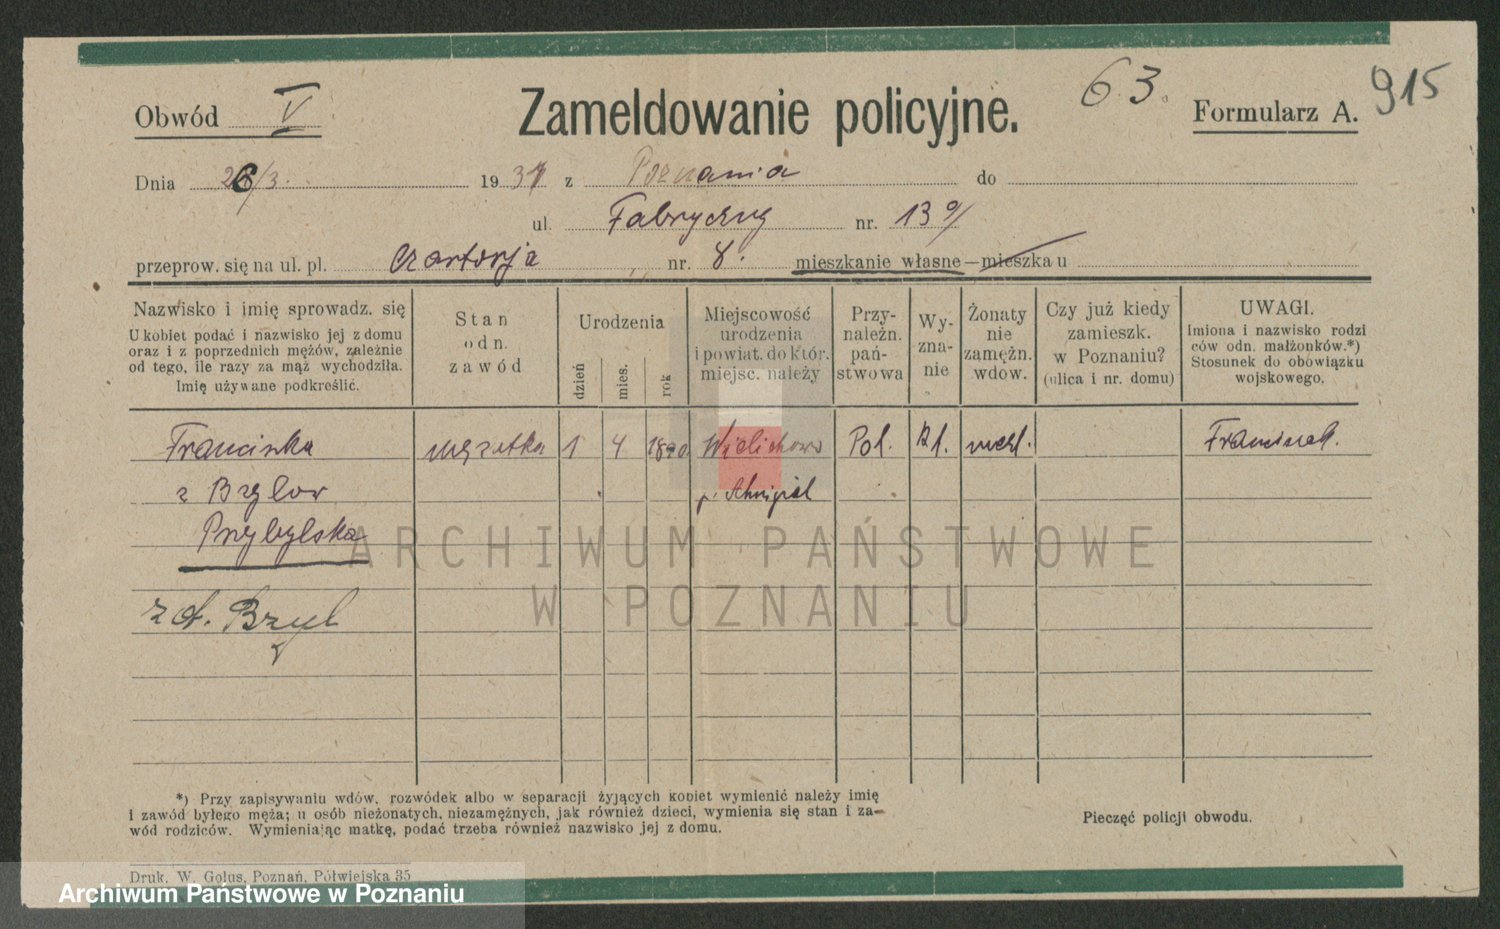 63.
915
Obwód V
Zameldowanie policyjne.
Formularz A.
Dnia 26/3. 1931 z Poznania do
ul. Fabryczny nr. 13 a/
przeprow. się na ul. pl. Czartorja nr. 8. mieszkanie własne — mieszka u
Nazwisko i imię sprowadz. się
U kobiet podać i nazwisko jej z domu
oraz i z poprzednich mężów, zależnie
od tego, ile razy za mąż wychodziła.
Imię używane podkreślić.
Stan
odn.
zawód
Urodzenia
dzień
mies.
rok
Miejscowość
urodzenia
i powiat. do któr.
miejsc. należy
Przy-
należn.
pań-
stwowa
Wy-
zna-
nie
Żonaty
nie
zamężn.
wdow.
Czy już kiedy
zamieszk.
w Poznaniu?
(ulica i nr. domu)
UWAGI.
Imiona i nazwisko rodzi
ców odn. małżonków.*)
Stosunek do obowiązku
wojskowego.
Franciszka mężatka 1 4 Wielichowo Pol.
z Bzylów
Przybylska
z d. Bzyl
ARCHIWUM PAŃSTWOWE
W POZNANIU
*) Przy zapisywaniu wdów, rozwódek albo w separacji żyjących kobiet wymienić należy imię
i zawód byłego męża; u osób nieżonatych, niezamężnych, jak również dzieci, wymienia się stan i za-
wód rodziców. Wymieniając matkę, podać trzeba również nazwisko jej z domu.
Pieczęć policji obwodu.
Druk. W. Golus, Poznań, Półwiejska 35
Archiwum Państwowe w Poznaniu